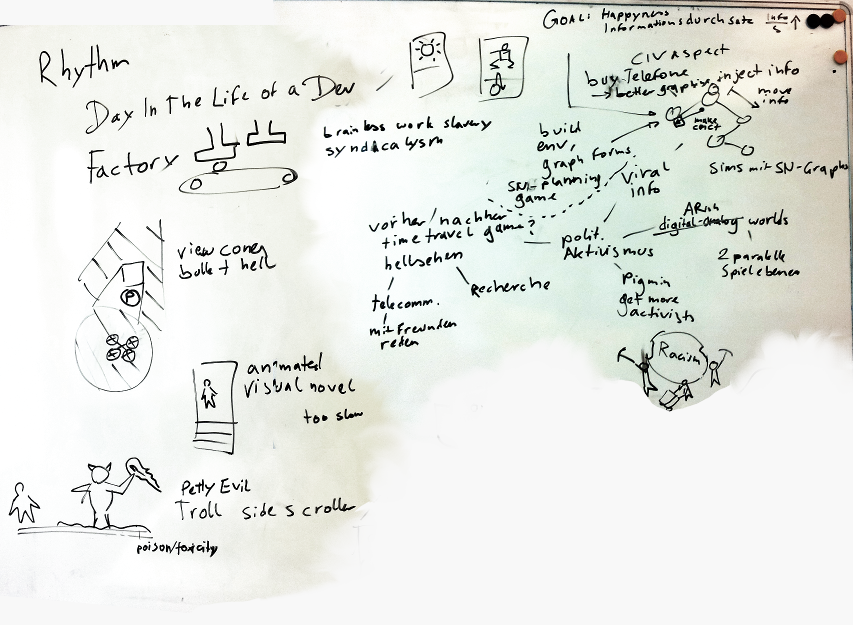 GOAL: Happyness
Informationsdurchsatz Info/s ↑
Rhythm
Day In The Life of a Dev
Factory
brainless work slavery
syndicalysm
view cones
bullet hell
P
animated
visual novel
too slow
Petty Evil
Troll side scroller
poison/toxicity
CIV Aspect
buy Telefone
→ better graphics
inject info
move
info
make
Sims mit SN-Graphs
build
env,
graph forms
SN-planning
game
viral
info
vorher/nachher
timetravel game?
hellsehen
telecomm.
mit Freunden
reden
Recherche
polit.
Aktivismus
ARish
digital-analog worlds
2 paralelle
Spielebenen
Pigmin
get more
activists
Racism